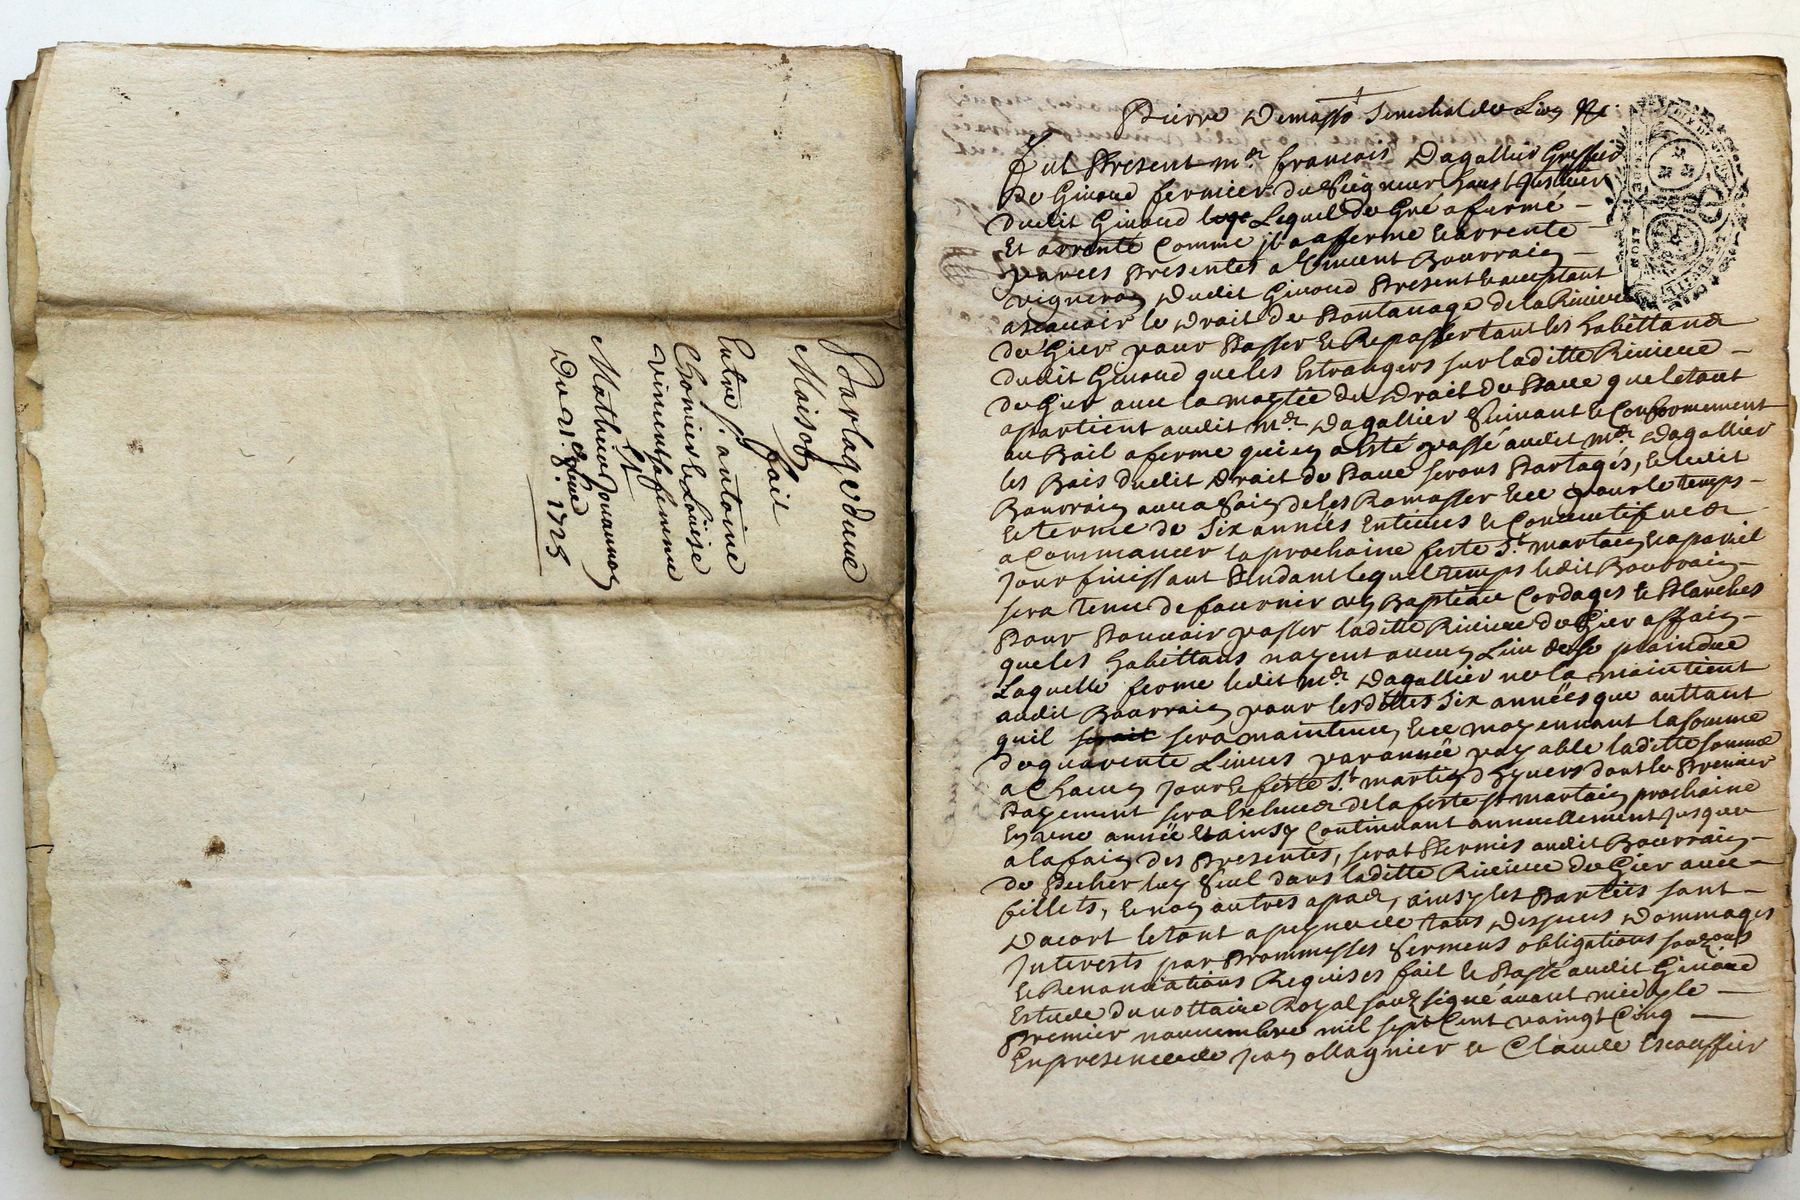 Partage d'une
Maison fait
Entre Sr. antoine
Chomier & Loüise
vincent sa femme
Et
Mathieu Jouannon
Du 21e 8bre 1725
Pierre Demasso Senechal de Lion &c
fut Present mer. francois Dagallier Greffier
De Givord fermier du Seigneur haut Justicier
dudit Givord Lequel de Gré a fermé
Et arrenté Comme jl afferme & arrente
par ces Presentes a Vincent Bourrain
vigneron dudit Givord Present & acceptant
ascavoir le Droit de Pontanage de la Riviere
de Gier pour Passer & Repasser tant les habittands
dudit Givord que les Estrangers sur laditte Riviere
de Gier avec la moytié du Droit de Pave que letout
apartient audit mer. Dagallier Suivant & Conformement
au Bail a ferme qui en a Esté passé audit mer. Dagallier
les Bois dudit Droit de Pave serons Partagés, & ledit
Bourrain aura Soin de les Ramasser & ce pour le temps
& terme de Six années Entieres & Consecutifves
a Commancer la prochaine feste St. martain & a pareil
Jour finissant Pendant lequel temps ledit Bourrain
sera tenu de fournir un Bapteau Cordages & Planches
Pour Pouvoir passer laditte Riviere de Gier affain
que les habittans nayent aucun Lieu de se plaindre
Laquelle ferme ledit mer. Dagallier ne la maintient
audit Bourrain pour lesdittes Six années que auttant
quil sera maintenu, & ce moyennant la somme
de quarente Livres par année payable laditte somme
a Chacun Jour & feste St. martin dhyvers dont le Premier
Payement sera Escheu de la feste St martain prochaine
En une année & ainsy Continuant annuellement jusques
a la fain des Presentes, serat Permis audit Bourrain
de Pecher luy Seul dans laditte Riviere de Gier avec
fillets, & non autres apas, ainsy les Parties sont
Dacort letout a peyne de tous Despens Dommages
Jnterests par Prommesses Sermens obligations
& Renonciations Requises fait & Passé audit Givord
Estude du nottaire Royal souzsigné avant midy le
Premier novembre mil sept Cent vaingt Cinq
En presence de jean ollagnier & Claude Escouffier